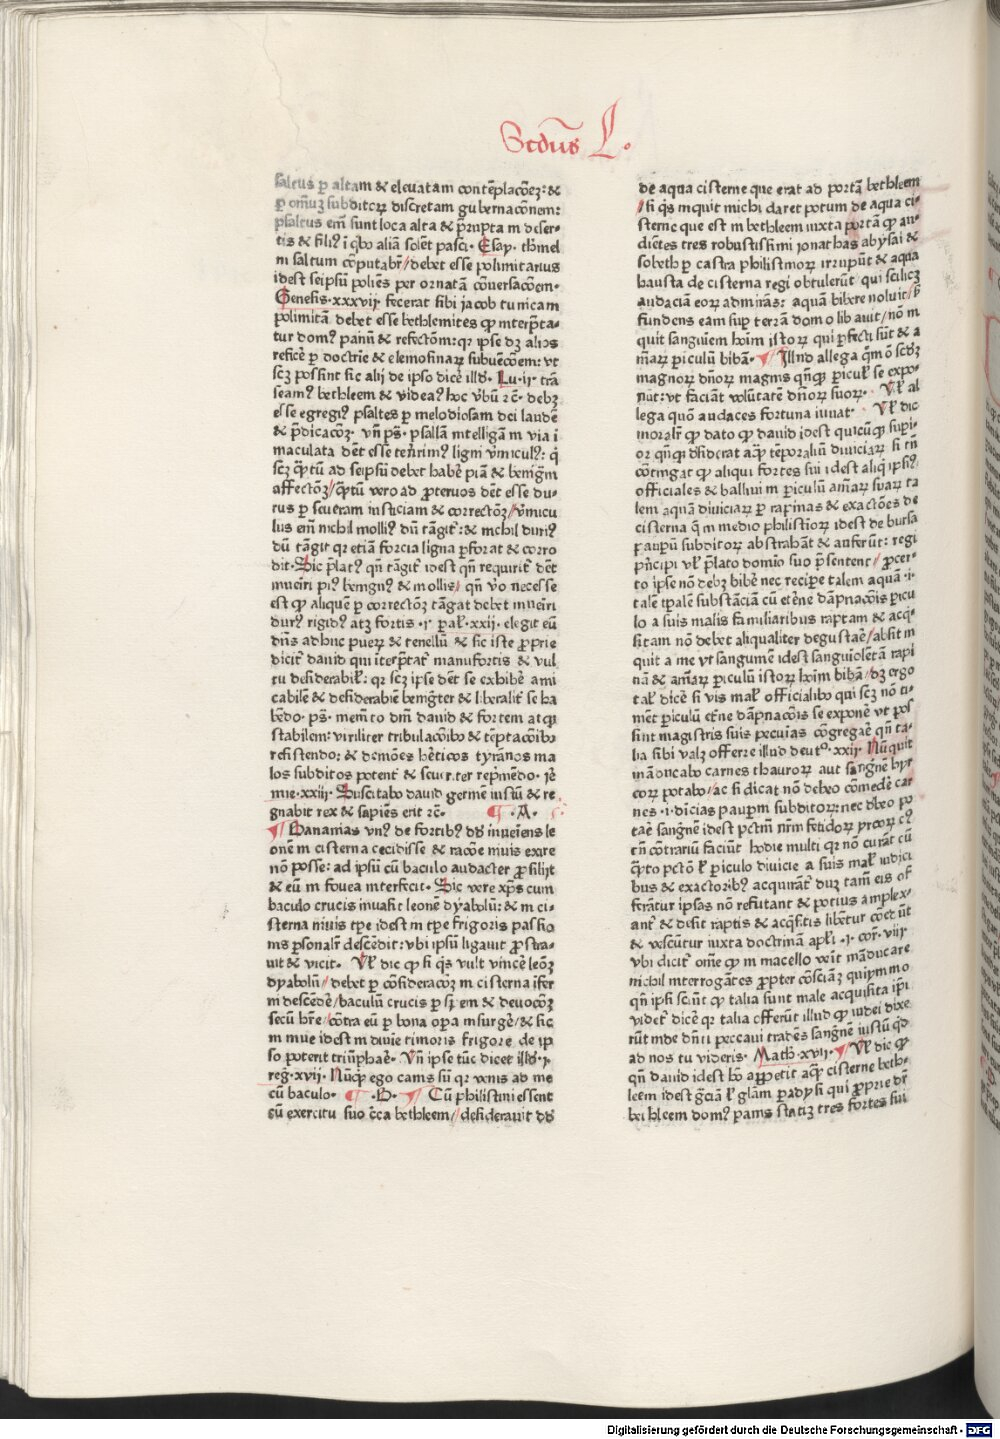 Scdus L.
saltus ꝑ altam & eleuatam contēplacōeʒ: &
ꝑ omēʒ subditoꝝ discretam gubernacōnem:
psaltus em̄ sunt loca alta & p̄rupta in deser-
tis & siluis ī qbo aliā solēt pasci. Esay. thmel
in saltum cōputabr̄/ debet esse polimitarius
idest seipsū poliēs per ornatā cōuersacōem.
Genesis.xxxvij. fecerat sibi jacob tunicam
polimitā debet esse bethlemites ꝙ interp̄ta-
tur domꝰ panū & refectōm: qꝛ ipse dʒ alios
reficē ꝑ doctrīe & elemosinaꝝ subuēcōem: vt
scʒ possint sic alij de ipso dicē illd. Lu.ij. trā
seamꝰ bethleem & videaꝰ hoc v̄bū ⁊c̄. debʒ
esse egregiꝰ psaltes ꝑ melodiosam dei laudē
& p̄dicacōʒ. vn̄ pſ. psallā intelligā in via i
maculata dēt esse tenrimꝰ ligni v̄miculꝰ: q̄
scʒ qꝑtū ad seipsū debet habē piā & benignā
affectōʒ/qꝑtū vero ad ꝓteruos dēt esse du-
rus ꝑ seueram insticiam & correctōʒ/v̄micu
lus em̄ nichil molliꝰ dū tāgit̄: & nichil duriꝰ
dū tāgit qꝛ etiā forcia ligna ꝑforat & corro
dit. Sic p̄latꝰ qn̄ tāgit̄ idest qn̄ requirit̄ dēt
inueīri piꝰ benignꝰ & mollis/ qn̄ v̄o necesse
est ꝙ aliquē ꝑ correctōʒ tāgat debet inueīri
durꝰ rigidꝰ atʒ fortis .i. paꝉ.xxii. elegit eū
dn̄s adhuc pueꝝ & tenellū & sic iste ꝓprie
dicit̄ dauid qui īterp̄tat̄ manufortis & vul
tu desiderabiꝉ: qꝛ scʒ ipse dēt se exhibē ami
cabilē & desiderabiē benigter & liberalit̄ se ha
bēdo. pſ. memēto dn̄i dauid & fortem atqꝫ
stabilem: viriliter tribulacōibo & tēptacōibo
resistendo: & demōes hēticos tyranos ma
los subditos potent̄ & seueriter rep̄mēdo. jē
mie.xxiij. Suscitabo dauid germē iustū & re
gnabit rex & sapiēs erit ⁊c̄. ¶ .A.
¶ Bananias vnꝰ de fortibꝰ dd inueīens le
onē in cisterna cecidisse & racōe niuis exire
nō posse: ad ipsū cū baculo audacter ꝓsilijt
& eū in fouea interfecit. Sic vere xp̄s cum
baculo crucis inuasit leonē dyabolū: & in ci-
sterna niuis tp̄e idest in tp̄e frigoris passio
nis ꝑsonalr̄ descēdit: vbi ipsū ligauit ꝓstra-
uit & vicit. Vꝉ dic ꝙ si qs vult vincē leōʒ
dyabolū/ debet ꝑ cōsideracōʒ in cisternā īfer
ni descedē/baculū crucis ꝑ spem & deuocōʒ
secū hr̄e/cōtra eū ꝑ bona oꝑa insurgē/& sic
in niue idest in diuīe timoris frigore de ip
so poterit triūphaē. Vn̄ ipse tūc dicet illd.j.
reg.xvij. Nūqꝫ ego canis sū qꝛ venis ad me
cū baculo. ¶ .B. ¶ Cū philistini essent
cū exercitu suo c̄ca bethleem/ desiderauit dd
de aqua cisterne que erat ad portā bethleem
/si qs inquit michi daret potum de aqua ci-
sterne que est in bethleem iuxta portā ꝙ au-
diētes tres robustissimi jonathas abysai &
soboth ꝑ castra philistinoꝝ irrupūt & aqua
hausta de cisterna regi obtulerūt qui scilicʒ
audaciā eoꝝ admirās: aquā bibere noluit/s̄
fundens eam suꝑ terrā domino libauit/ nō in
quit sanguiem hoīm istoꝝ qui ꝑfecti sūt & a
n̄iaꝝ piculū bibā. ¶ Illud allega qmō scdʒ
magnoꝝ dn̄oꝝ magnis qn̄qꝫ picuꝉ se expo-
nūt: vt faciāt volūtatē dn̄oꝝ suoꝝ. Vꝉ al
lega quō audaces fortuna iuuat. Vꝉ dic
moralr̄ ꝙ dato ꝙ dauid idest quicūqꝫ supi-
or qn̄qꝫ dsiderat aqꝫ tēporaliū diuiciaꝝ si tn̄
cōtingat ꝙ aliqui fortes sui idest aliqi ipsiꝰ
officiales & balliui in piculū aīaꝝ suaꝝ ta
lem aquā diuiciaꝝ ꝑ rapinas & exactōes de
cisterna q̄ in medio philistioꝝ idest de bursa
pauꝑū subditoꝝ abstrahāt & auferūt: regi
pn̄cipi vꝉ p̄lato domīo suo p̄sentent/ ꝓcer-
to ipse nō debʒ bibē nec recipe talem aquā .i.
talē ipalē substāciā cū etēne dāpnacōis picu
lo a suis malis familiaribus raptam & acq̄-
sitam nō debet aliqualiter degustaē/absit in
quit a me vt sanguinē idest sanguiolētā rapi
nā & aīaꝝ piculū istoꝝ hoīm bibā/dʒ ergo
taꝉ dicē si vis maꝉ officialibo qui scʒ nō ti-
mēt piculū et̄ne dāpnacōis se exponē vt pos
sint magistris suis pecuīas cōgregaē qn̄ ta-
lia sibi valʒ offerre illud deuto.xxij. Nūquit
māducabo carnes thauroꝝ aut sangnē hyr
coꝝ potabo/ac si dicat nō debeo comedē car
nes .i. dicias paupm subditoꝝ: nec dbeo po
taē sangnē idest pctm̄ nr̄m fetidoꝝ pcoꝝ cꝰ
tn̄ cōtrariū faciūt hodie multi qꝛ nō curāt cū
qꝑto pctō ꝉ piculo diuicie a suis maꝉ iudici
bus & exactoribꝰ acquirāt̄ duʒ tam̄ eis of
ferātur ipsas nō refutant & potius amplex-
ant̄ & desit raptis & acqsitis libētur comedūt
& vescūtur iuxta doctrinā apꝉi .i. cor. viij
vbi dicit̄ om̄e ꝙ in macello venit māducare
nichil interrogātes ꝓpter cōsciāʒ quiymmo
qn̄ ipsi sciūt ꝙ talia sunt male acquisita ipi
videt̄ dicē qꝛ talia offerūt illud ꝙ iudei dixe
rūt inde dn̄ij peccaui tradēs sangnē iustū qd
ad nos tu videris. Math.xvij. ¶ Vꝉ dic ꝙ
qn̄ dauid idest ho appetit aqꝫ cisterne beth-
leem idest gr̄am ꝉ glam padysi qui ꝓprie dr̄
bethleem domꝰ panis statiʒ tres fortes sui
Digitalisierung gefördert durch die Deutsche Forschungsgemeinschaft - DFG